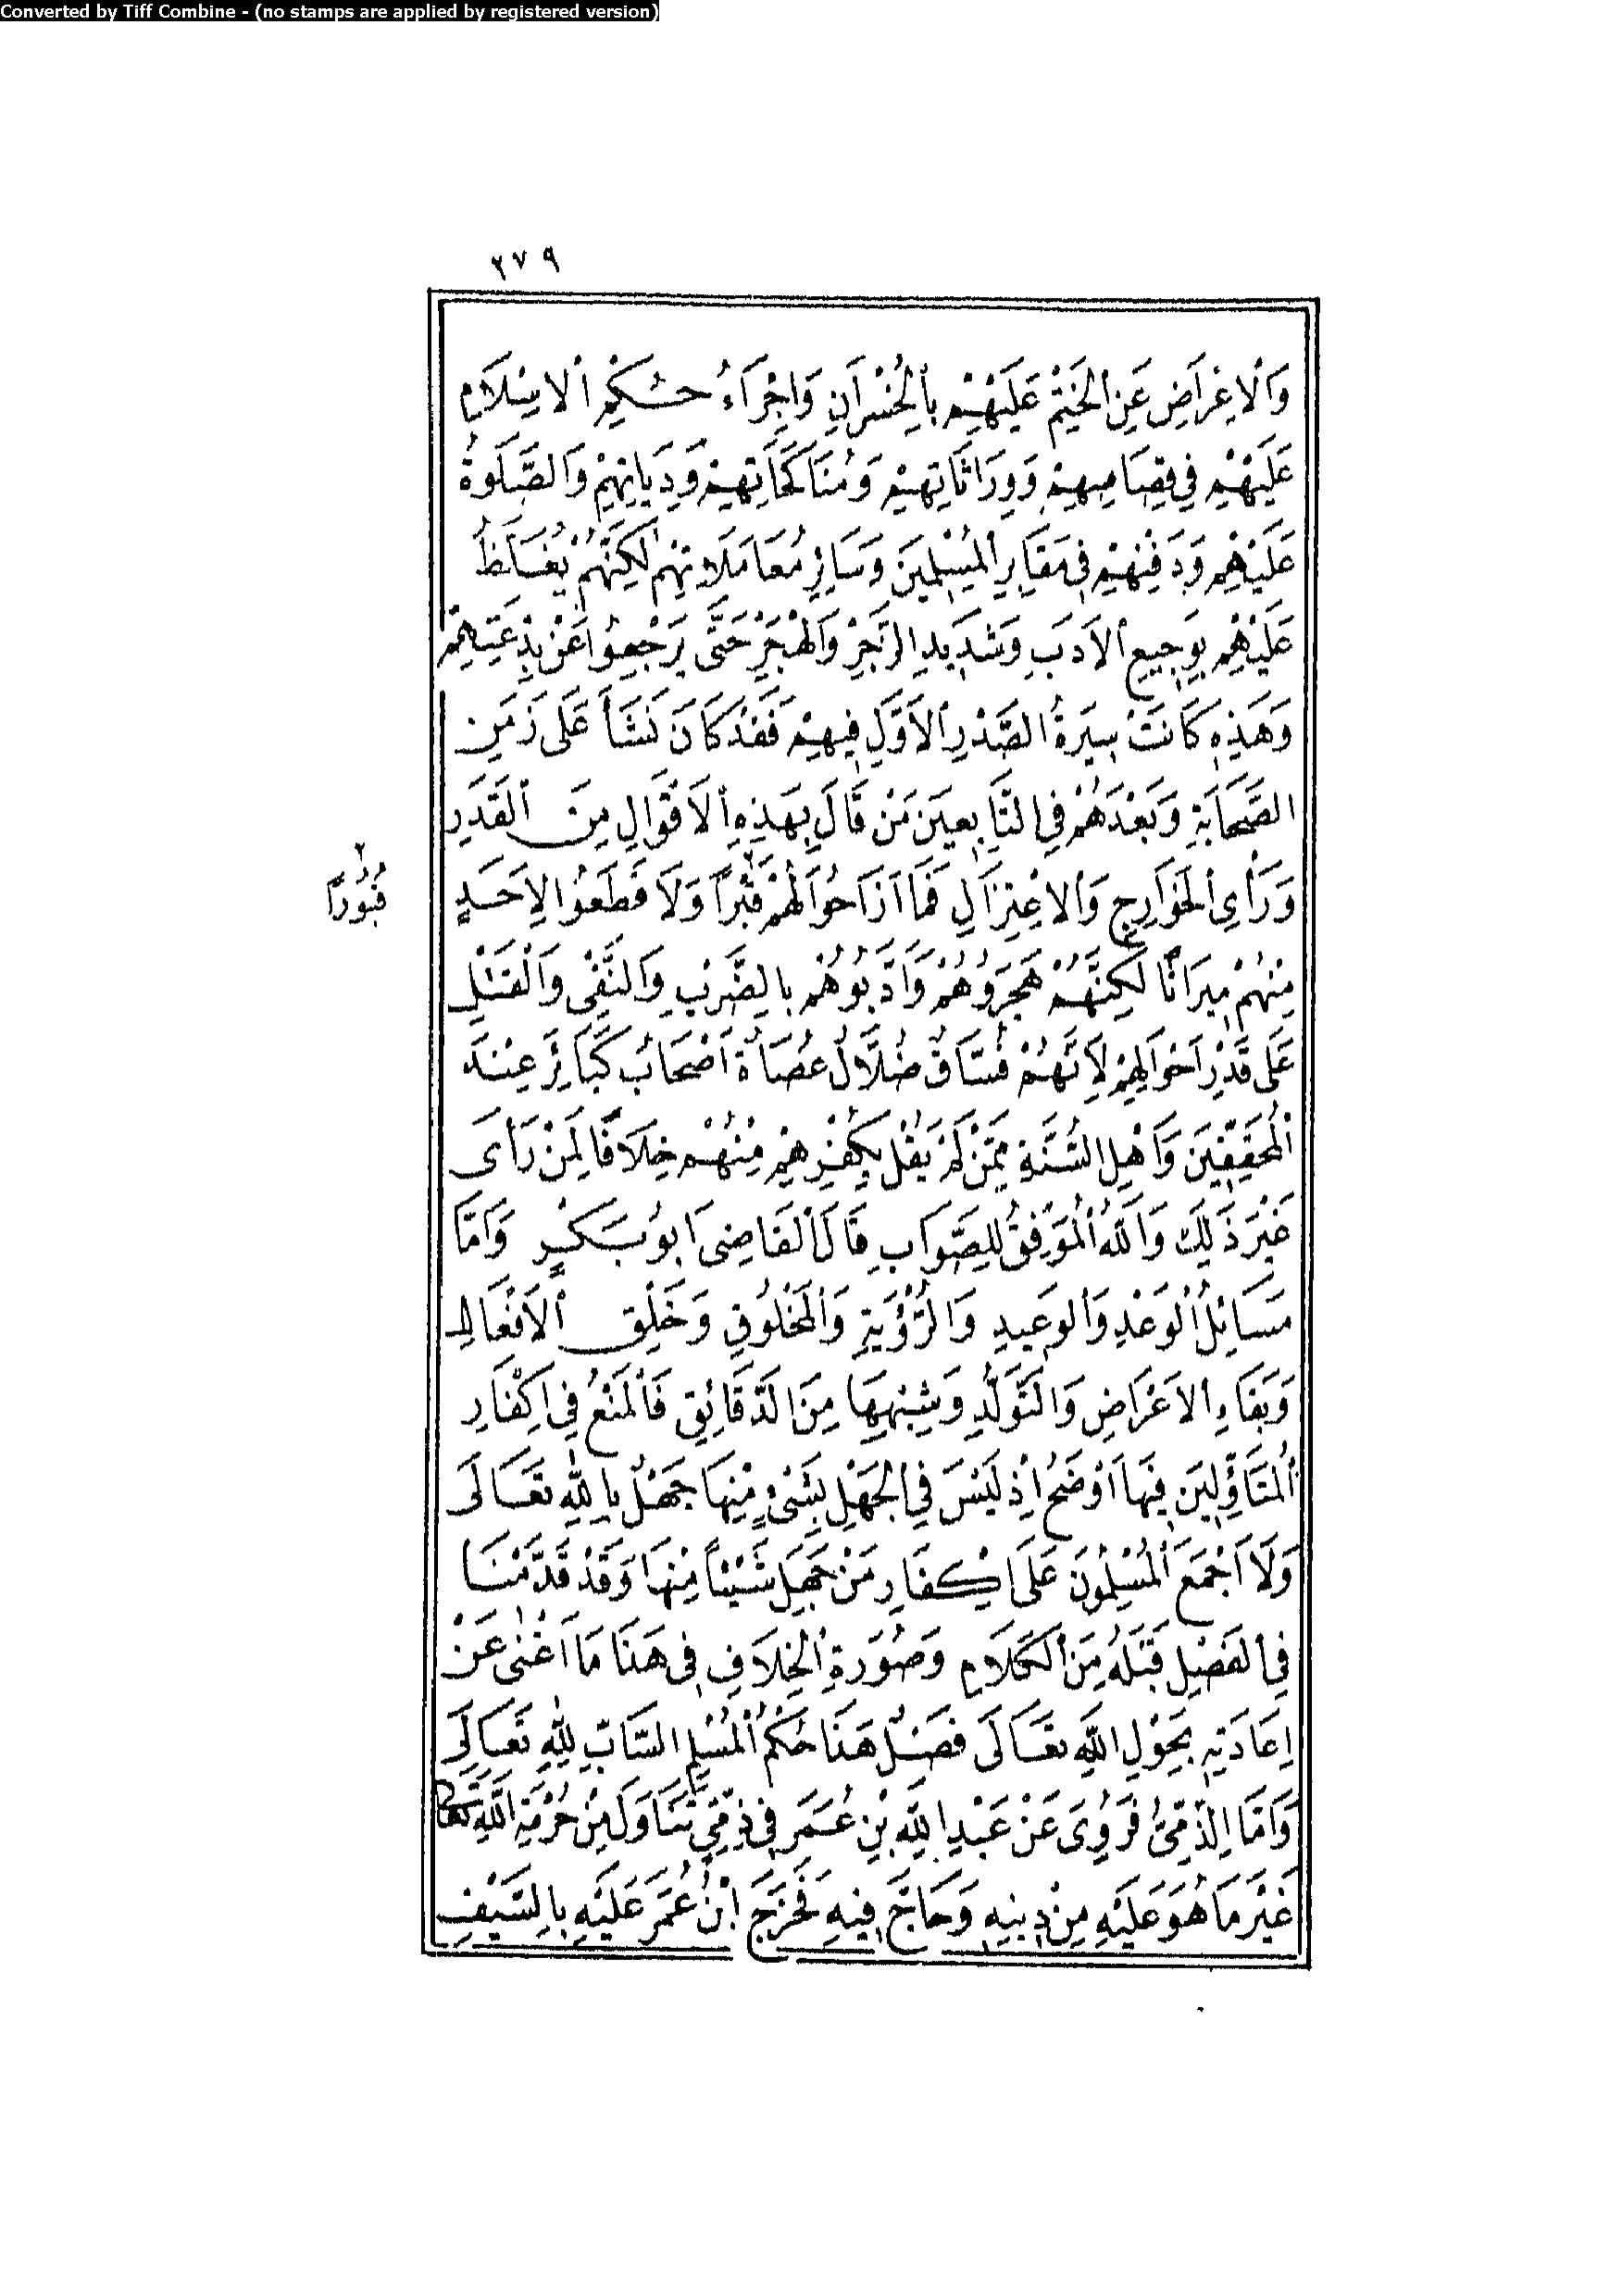 Converted by Tiff Combine - (no stamps are applied by registered version)
٢٧٩
وَالْاِعْرَاضِ عَنِ الْخَتْمِ عَلَيْهِمْ بِالْخُسْرَانِ وَاِجْرَاءُ حُكْمِ الْاِسْلَامِ
عَلَيْهِمْ فِي قِصَاصِهِمْ وَوِرَاثَاتِهِمْ وَمُنَاكَحَاتِهِمْ وَدِيَاتِهِمْ وَالصَّلٰوةُ
عَلَيْهِمْ وَدَفْنِهِمْ فِي مَقَابِرِ الْمُسْلِمِينَ وَسَائِرِ مُعَامَلَاتِهِمْ لٰكِنَّهُمْ يُغَلَّظُ
عَلَيْهِمْ بِوَجِيعِ الْاَدَبِ وَشَدِيدِ الزَّجْرِ وَالْهَجْرِ حَتَّى يَرْجِعُوا عَنْ بِدْعَتِهِمْ
وَهَذِهِ كَانَتْ سِيرَةُ الصَّدْرِ الْاَوَّلِ فِيهِمْ فَقَدْ كَانَ نَشَأَ عَلَى زَمَنِ
الصَّحَابَةِ وَبَعْدَهُمْ فِي التَّابِعِينَ مَنْ قَالَ بِهَذِهِ الْاَقْوَالِ مِنَ الْقَدَرِ
وَرَأْىِ الْخَوَارِجِ وَالْاِعْتِزَالِ فَمَا اَزَاحُوا لَهُمْ قَبْرًا وَلَا قَطَعُوا لِاَحَدٍ
٢ قُبُورًا
مِنْهُمْ مِيرَاثًا لَكِنَّهُمْ هَجَرُوهُمْ وَاَدَّبُوهُمْ بِالضَّرْبِ وَالنَّفْىِ وَالْقَتْلِ
عَلَى قَدْرِ اَحْوَالِهِمْ لِاَنَّهُمْ فُسَّاقٌ ضُلَّالٌ عُصَاةٌ اَصْحَابُ كَبَائِرَ عِنْدَ
الْمُحَقِّقِينَ وَاَهْلِ السُّنَّةِ مِمَّنْ لَمْ يَقُلْ بِكُفْرِهِمْ مِنْهُمْ خِلَافًا لِمَنْ رَأَى
غَيْرَ ذَلِكَ وَاللّٰهُ الْمُوَفِّقُ لِلصَّوَابِ قَالَ الْقَاضِى اَبُو بَكْرٍ وَاَمَّا
مَسَائِلُ الْوَعْدِ وَالْوَعِيدِ وَالرُّؤْيَةِ وَالْمَخْلُوقِ وَخَلْقِ الْاَفْعَالِ
وَبَقَاءِ الْاَعْرَاضِ وَالتَّوَلُّدِ وَشِبْهِهَا مِنَ الدَّقَائِقِ فَالْمَنْعُ فِي اِكْفَارِ
الْمُتَأَوِّلِينَ فِيهَا اَوْضَحُ اِذْ لَيْسَ فِي الْجَهْلِ بِشَىْءٍ مِنْهَا جَهْلٌ بِاللّٰهِ تَعَالَى
وَلَا اَجْمَعَ الْمُسْلِمُونَ عَلَى اِكْفَارِ مَنْ جَهِلَ شَيْئًا مِنْهَا وَقَدْ قَدَّمْنَا
فِي الْفَصْلِ قَبْلَهُ مِنَ الْكَلَامِ وَصُورَةِ الْخِلَافِ فِي هَذَا مَا اَغْنٰى عَنْ
اِعَادَتِهِ بِحَوْلِ اللّٰهِ تَعَالَى فَصْلٌ هَذَا حُكْمُ الْمُسْلِمِ السَّابِّ لِلّٰهِ تَعَالَى
وَاَمَّا الذِّمِّىُّ فَرُوِىَ عَنْ عَبْدِ اللّٰهِ بْنِ عُمَرَ فِي ذِمِّىٍّ تَنَاوَلَ مِنْ حُرْمَةِ اللّٰهِ تَعَالَى
غَيْرَ مَا هُوَ عَلَيْهِ مِنْ دِينِهِ وَحَاجَّ فِيهِ فَخَرَجَ ابْنُ عُمَرَ عَلَيْهِ بِالسَّيْفِ